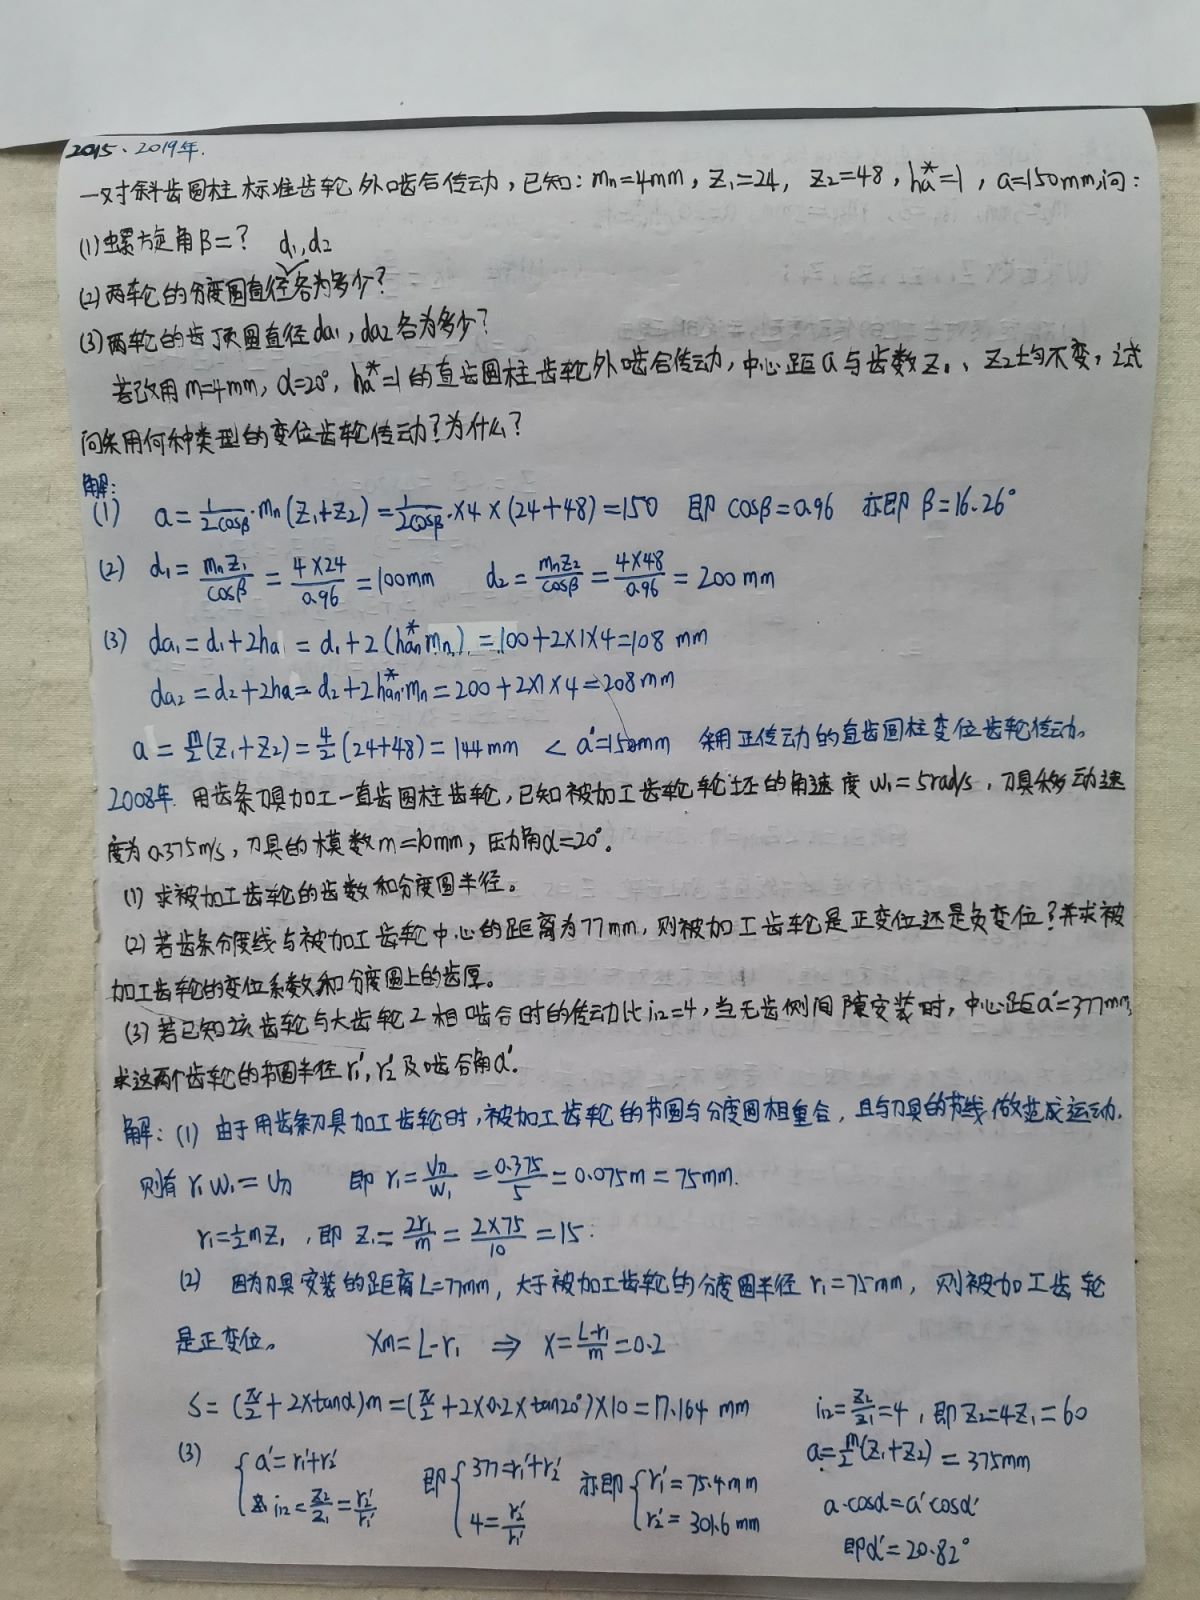 2015、2019年.
一对斜齿圆柱标准齿轮外啮合传动，已知：mn=4mm，Z1=24，Z2=48，ha*=1，a=150mm,问：
(1)螺旋角β=？ d1,d2
(2)两轮的分度圆直径各为多少？
(3)两轮的齿顶圆直径da1,da2各为多少？
若改用m=4mm，α=20°，ha*=1的直齿圆柱齿轮外啮合传动，中心距a与齿数Z1、Z2均不变，试
问采用何种类型的变位齿轮传动？为什么？
解：
(1) a=1/(2cosβ)·mn(Z1+Z2)=1/(2cosβ)·×4×(24+48)=150 即 cosβ=0.96 亦即 β=16.26°
(2) d1=mnZ1/cosβ=4×24/0.96=100mm d2=mnZ2/cosβ=4×48/0.96=200mm
(3) da1=d1+2ha=d1+2(han*mn)=100+2×1×4=108 mm
da2=d2+2ha=d2+2han*·mn=200+2×1×4=208mm
a=m/2(Z1+Z2)=4/2(24+48)=144mm < a'=150mm 采用正传动的直齿圆柱变位齿轮传动。
2008年. 用齿条刀具加工一直齿圆柱齿轮，已知被加工齿轮轮坯的角速度ω1=5rad/s，刀具移动速
度为0.375m/s，刀具的模数m=10mm，压力角α=20°。
(1) 求被加工齿轮的齿数和分度圆半径。
(2) 若齿条分度线与被加工齿轮中心的距离为77mm，则被加工齿轮是正变位还是负变位？并求被
加工齿轮的变位系数和分度圆上的齿厚。
(3) 若已知该齿轮与大齿轮2相啮合时的传动比i12=4，当无齿侧间隙安装时，中心距a'=377mm,
求这两个齿轮的节圆半径r1',r2'及啮合角α'.
解：(1) 由于用齿条刀具加工齿轮时，被加工齿轮的节圆与分度圆相重合，且与刀具的节线做范成运动.
则有 r1ω1=υ刀 即 r1=υ刀/ω1=0.375/5=0.075m=75mm.
r1=1/2mZ1，即 Z1=2r1/m=2×75/10=15.
(2) 因为刀具安装的距离L=77mm，大于被加工齿轮的分度圆半径r1=75mm，则被加工齿轮
是正变位。 xm=L-r1 ⇒ x=(L-r1)/m=0.2
S=(π/2+2xtanα)m=(π/2+2×0.2×tan20°)×10=17.164 mm i12=Z2/Z1=4，即Z2=4Z1=60
(3) {a'=r1'+r2' 即{377=r1'+r2' 亦即{r1'=75.4mm a=m/2(Z1+Z2)=375mm
i12=Z2/Z1=r2'/r1' 4=r2'/r1' r2'=301.6mm a·cosα=a'cosα'
即α'=20.82°